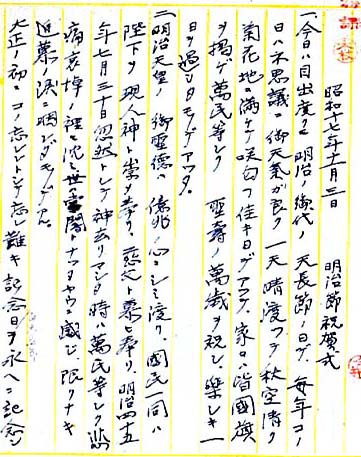 昭和十七年十一月三日　明治節祝賀式
一、今日ハ目出度キ明治ノ御代ノ天長節ノ日デ、毎年コノ
日ハ不思議ニ御天気ガ良ク一天晴渡ツテ秋空清ク
菊花地ニ満チテ咲匂フ佳キ日デアツテ、家々ハ皆國旗
ヲ掲ゲ萬民等シク聖壽ノ萬歳ヲ祝シ、樂シキ一
日ヲ過シタモノデアツタ。
二、明治天皇ノ御聖徳ハ億兆ノ心ニシミ渡リ、國民一同ハ
陛下ヲ現人神ト崇メ奉リ、慈父ト慕ヒ奉リ、明治四十五
年七月三十日忽然トシテ神去リマシタ時ハ萬民等シク悲
痛哀悼ノ裡ニ沈ミ世ハ闇トナツタヤウニ感ジ、限リナキ
近慕ノ涙ニ咽ンダモノデアル。
大正ノ初ニコノ忘レントシテ忘レ難キ記念日ヲ永ヘニ記念シ